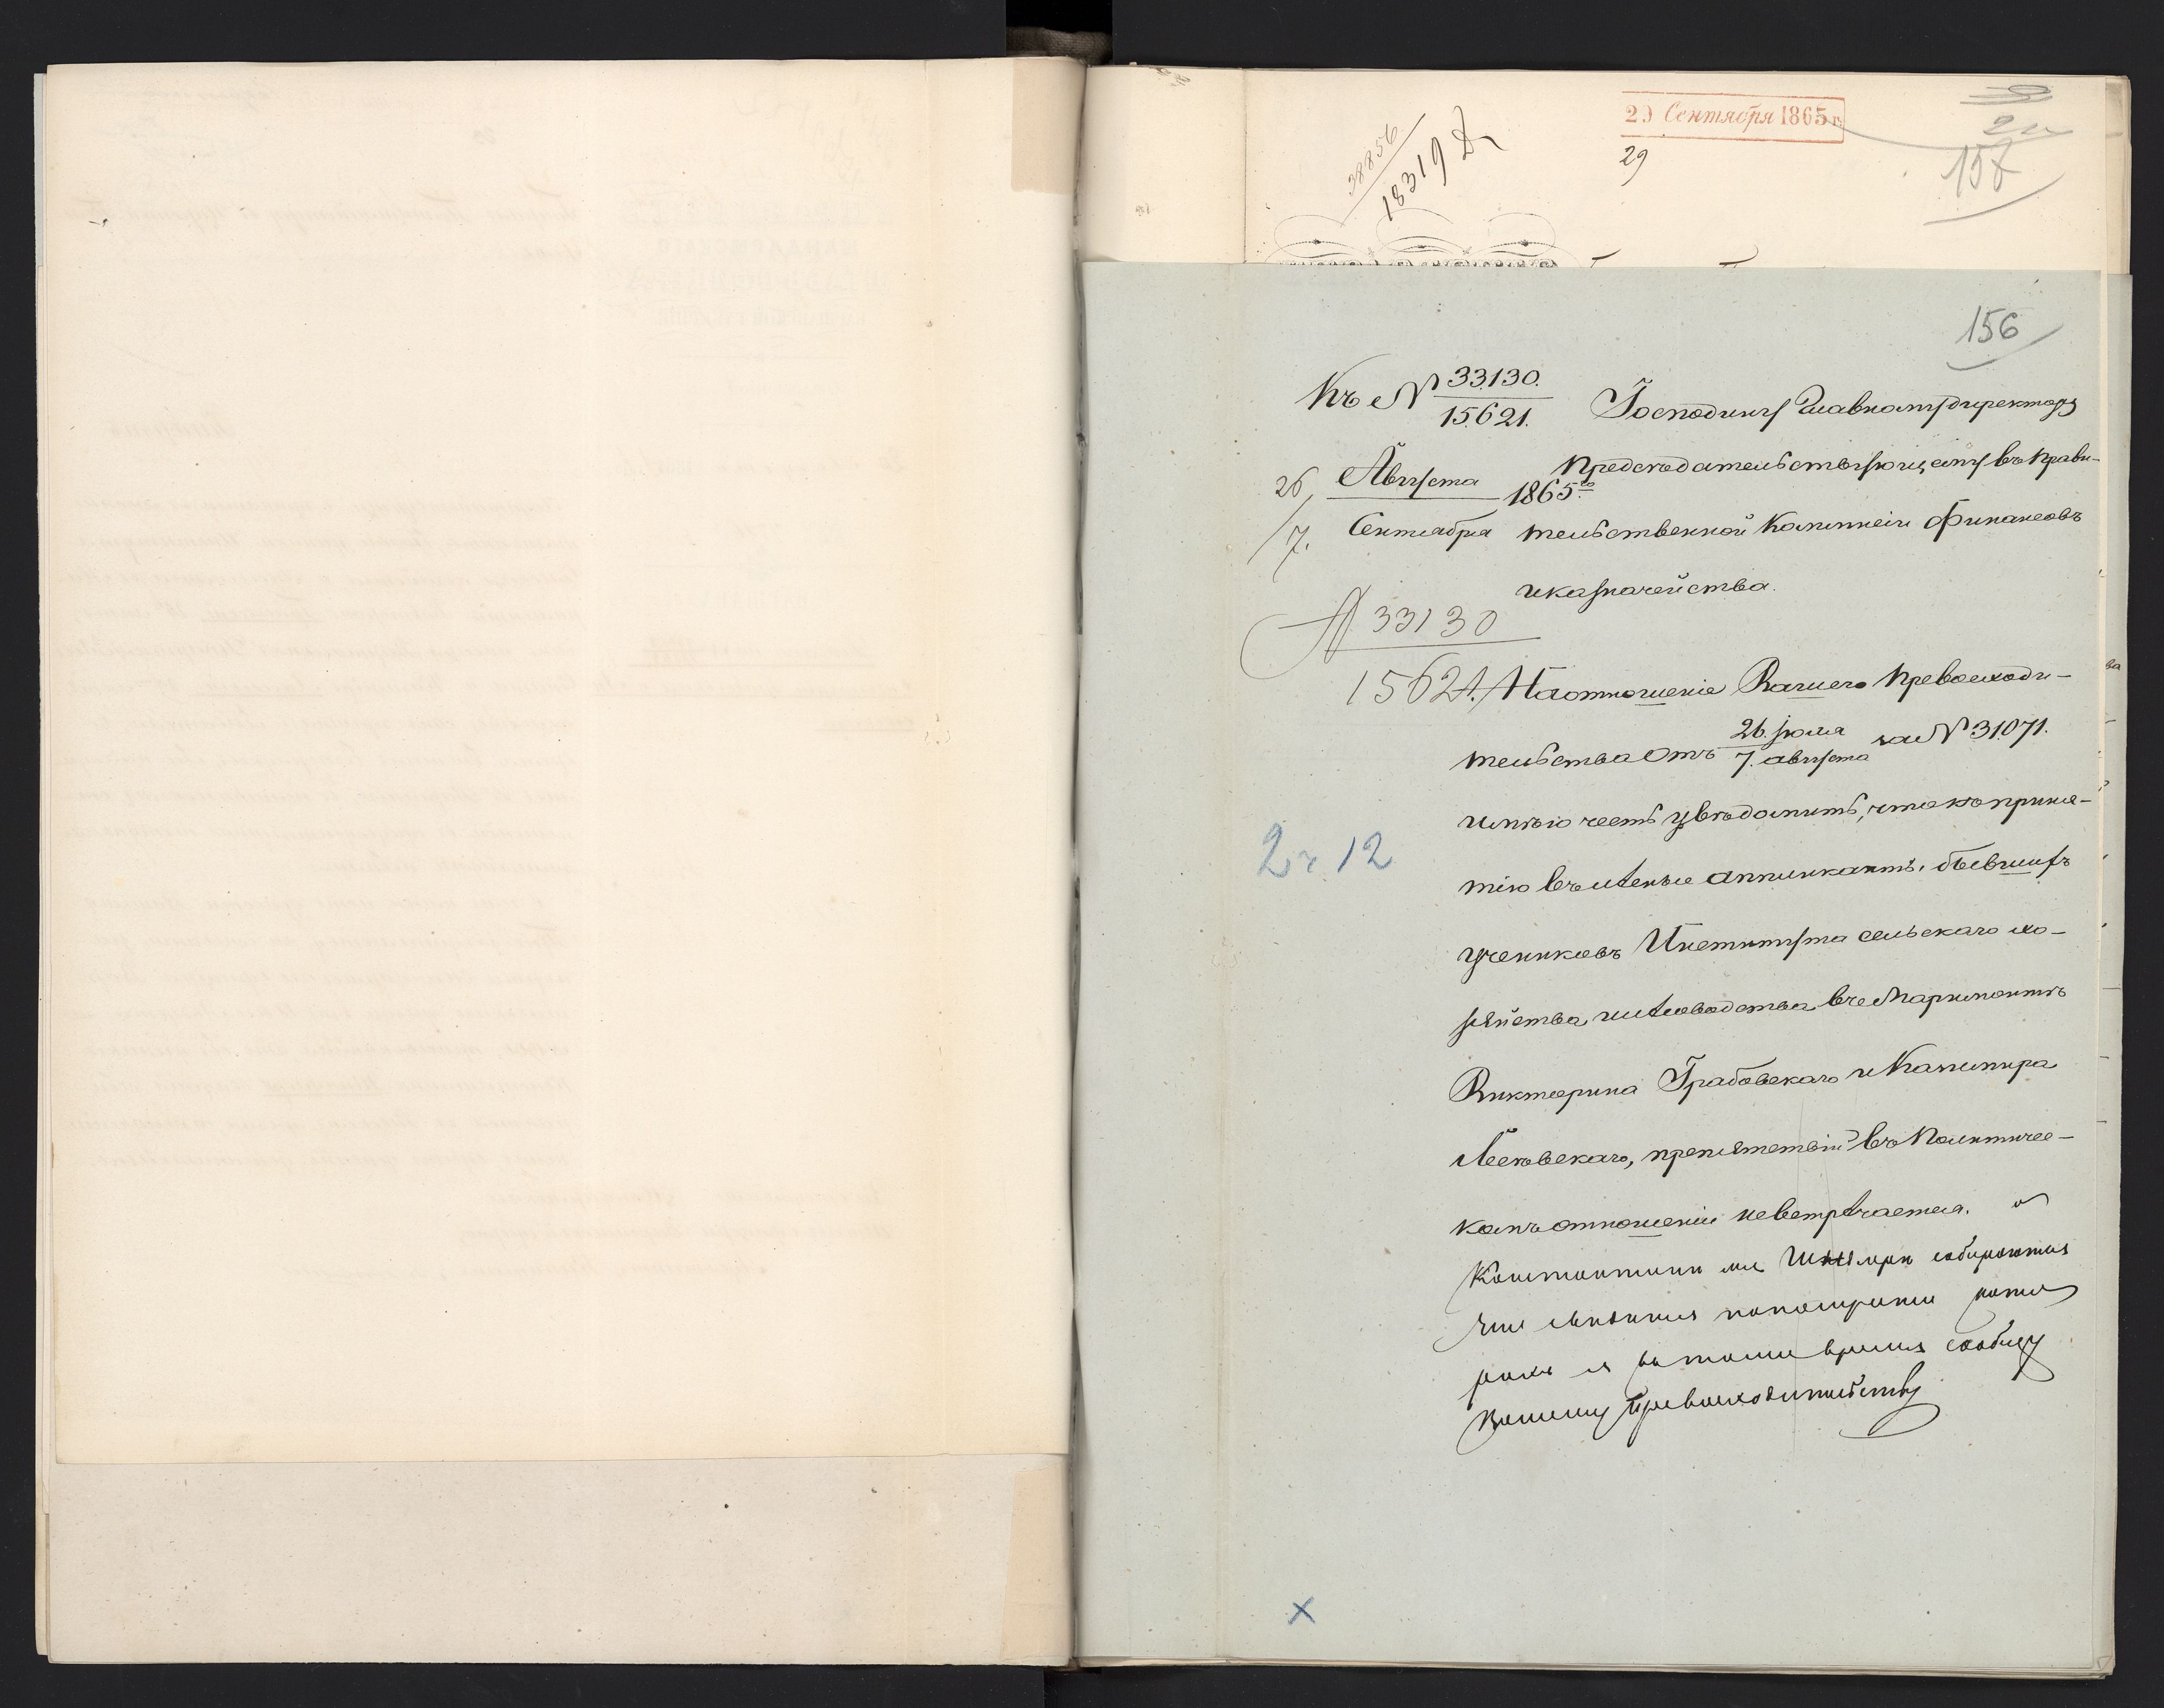 29 Сентября 1865 г.
29
38856
18319
157
156
Къ № 33130.
15621.
Господину Главному директору
26 Августа
1865го
7. Сентября
Предсѣдательствующему въ Прави-
тельственной Коммисіи Финансовъ
и казначейства.
№ 33130
15621.
На отношеніе Вашего Превосходи-
тельства отъ 26 Іюля
7. августа за № 31071.
имѣю честь увѣдомить, что къ приня-
тію въ лѣсные аппликанты, бывшихъ
учениковъ Института сельскаго хо-
зяйства и лѣсоводства въ Маримонтѣ
Викторина Грабовскаго и Казимира
Лесковскаго, препятствій въ Политичес-
комъ отношеніи не встрѣчается. о
Константинѣ же собираются
рыхъ я въ тоже время сообщу
Вашему Превосходительству
2 г. 12